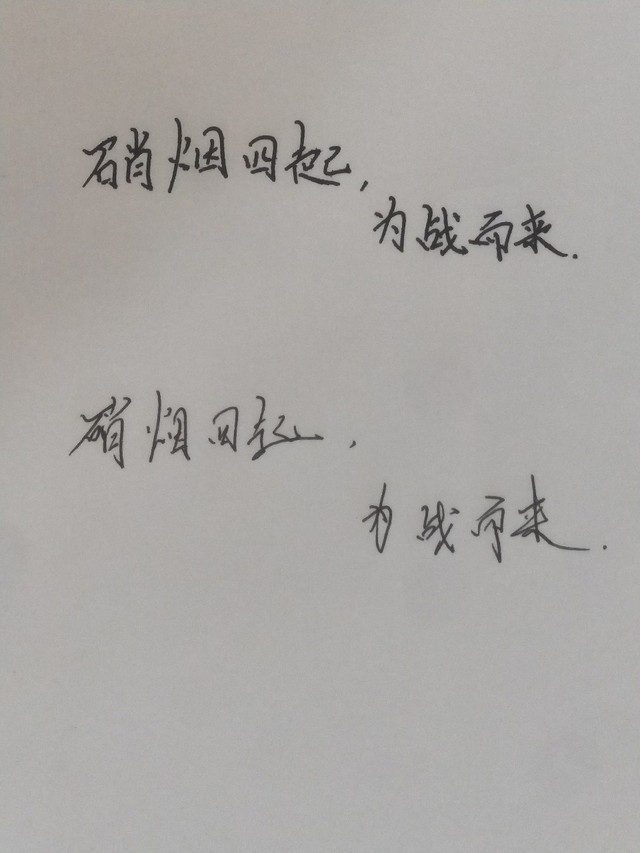 硝烟四起,
为战而来.
硝烟四起,
为战而来.